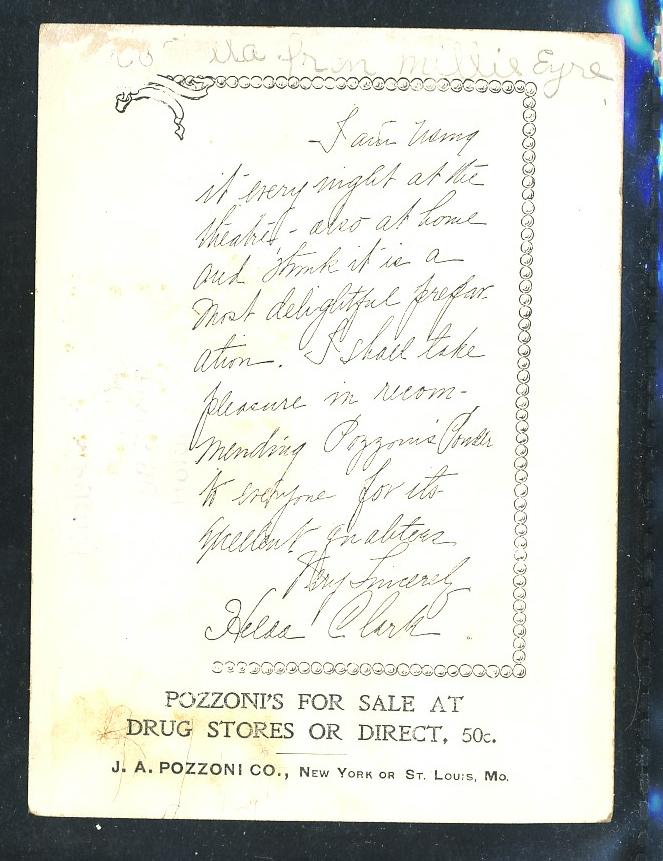 from Millie Eyre
I am using
it every night at the
theatre - also at home
and think it is a
most delightful prepar-
ation. I shall take
pleasure in recom-
mending Pozzoni's Powder
to everyone for its
excellent qualities
Very Sincerely
Hilda Clark.
POZZONI'S FOR SALE AT
DRUG STORES OR DIRECT, 50c.
J. A. POZZONI CO., NEW YORK OR ST. LOUIS, MO.